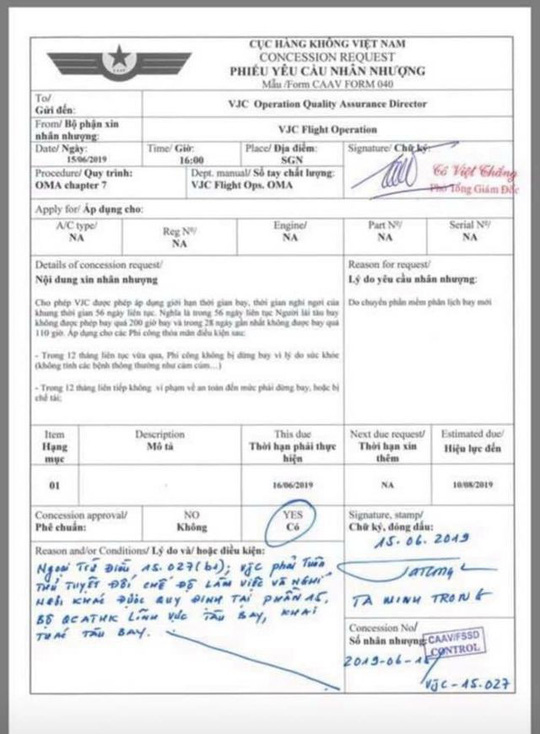 CỤC HÀNG KHÔNG VIỆT NAM
CONCESSION REQUEST
PHIẾU YÊU CẦU NHÂN NHƯỢNG
Mẫu /Form CAAV FORM 040
To/
Gửi đến:
VJC Operation Quality Assurance Director
From/ Bộ phận xin
nhân nhượng:
VJC Flight Operation
Date/ Ngày:
15/06/2019
Time/ Giờ:
16:00
Place/ Địa điểm:
SGN
Signature/ Chữ ký:
Tô Việt Thắng
Phó Tổng Giám Đốc
Procedure/ Quy trình:
OMA chapter 7
Dept. manual/ Sổ tay chất lượng:
VJC Flight Ops. OMA
Apply for/ Áp dụng cho:
A/C type/
NA
Reg Nº/
NA
Engine/
NA
Part Nº/
NA
Serial Nº/
NA
Details of concession request/
Nội dung xin nhân nhượng
Reason for request/
Lý do yêu cầu nhân nhượng:
Cho phép VJC được phép áp dụng giới hạn thời gian bay, thời gian nghỉ ngơi của
khung thời gian 56 ngày liên tục. Nghĩa là trong 56 ngày liên tục Người lái tàu bay
không được phép bay quá 200 giờ bay và trong 28 ngày gần nhất không được bay quá
110 giờ. Áp dụng cho các Phi công thỏa mãn điều kiện sau:
- Trong 12 tháng liên tục vừa qua, Phi công không bị dừng bay vì lý do sức khỏe
(không tính các bệnh thông thường như cảm cúm...)
- Trong 12 tháng liên tiếp không vi phạm về an toàn đến mức phải dừng bay, hoặc bị
chế tài;
Do chuyển phần mềm phân lịch bay mới
Item
Hạng
mục
Description
Mô tả
This due
Thời hạn phải thực
hiện
Next due request/
Thời hạn xin
thêm
Estimated due/
Hiệu lực đến
01
16/06/2019
NA
10/08/2019
Concession approval/
Phê chuẩn:
NO
Không
YES
Có
Signature, stamp/
Chữ ký, đóng dấu:
15.06.2019
TA MINH TRONG
Reason and/or Conditions/ Lý do và/ hoặc điều kiện:
Ngoại trừ Điều 15.027(b1); VJC phải tuân
thủ tuyệt đối chế độ làm việc và nghỉ
ngơi khác được quy định tại phần 15,
Bộ QCATHK lĩnh vực tàu bay, khai
thác tàu bay.
Concession No/
Số nhân nhượng:
CAAV/FSSD
CONTROL
2019-06-15/
VJC-15.027